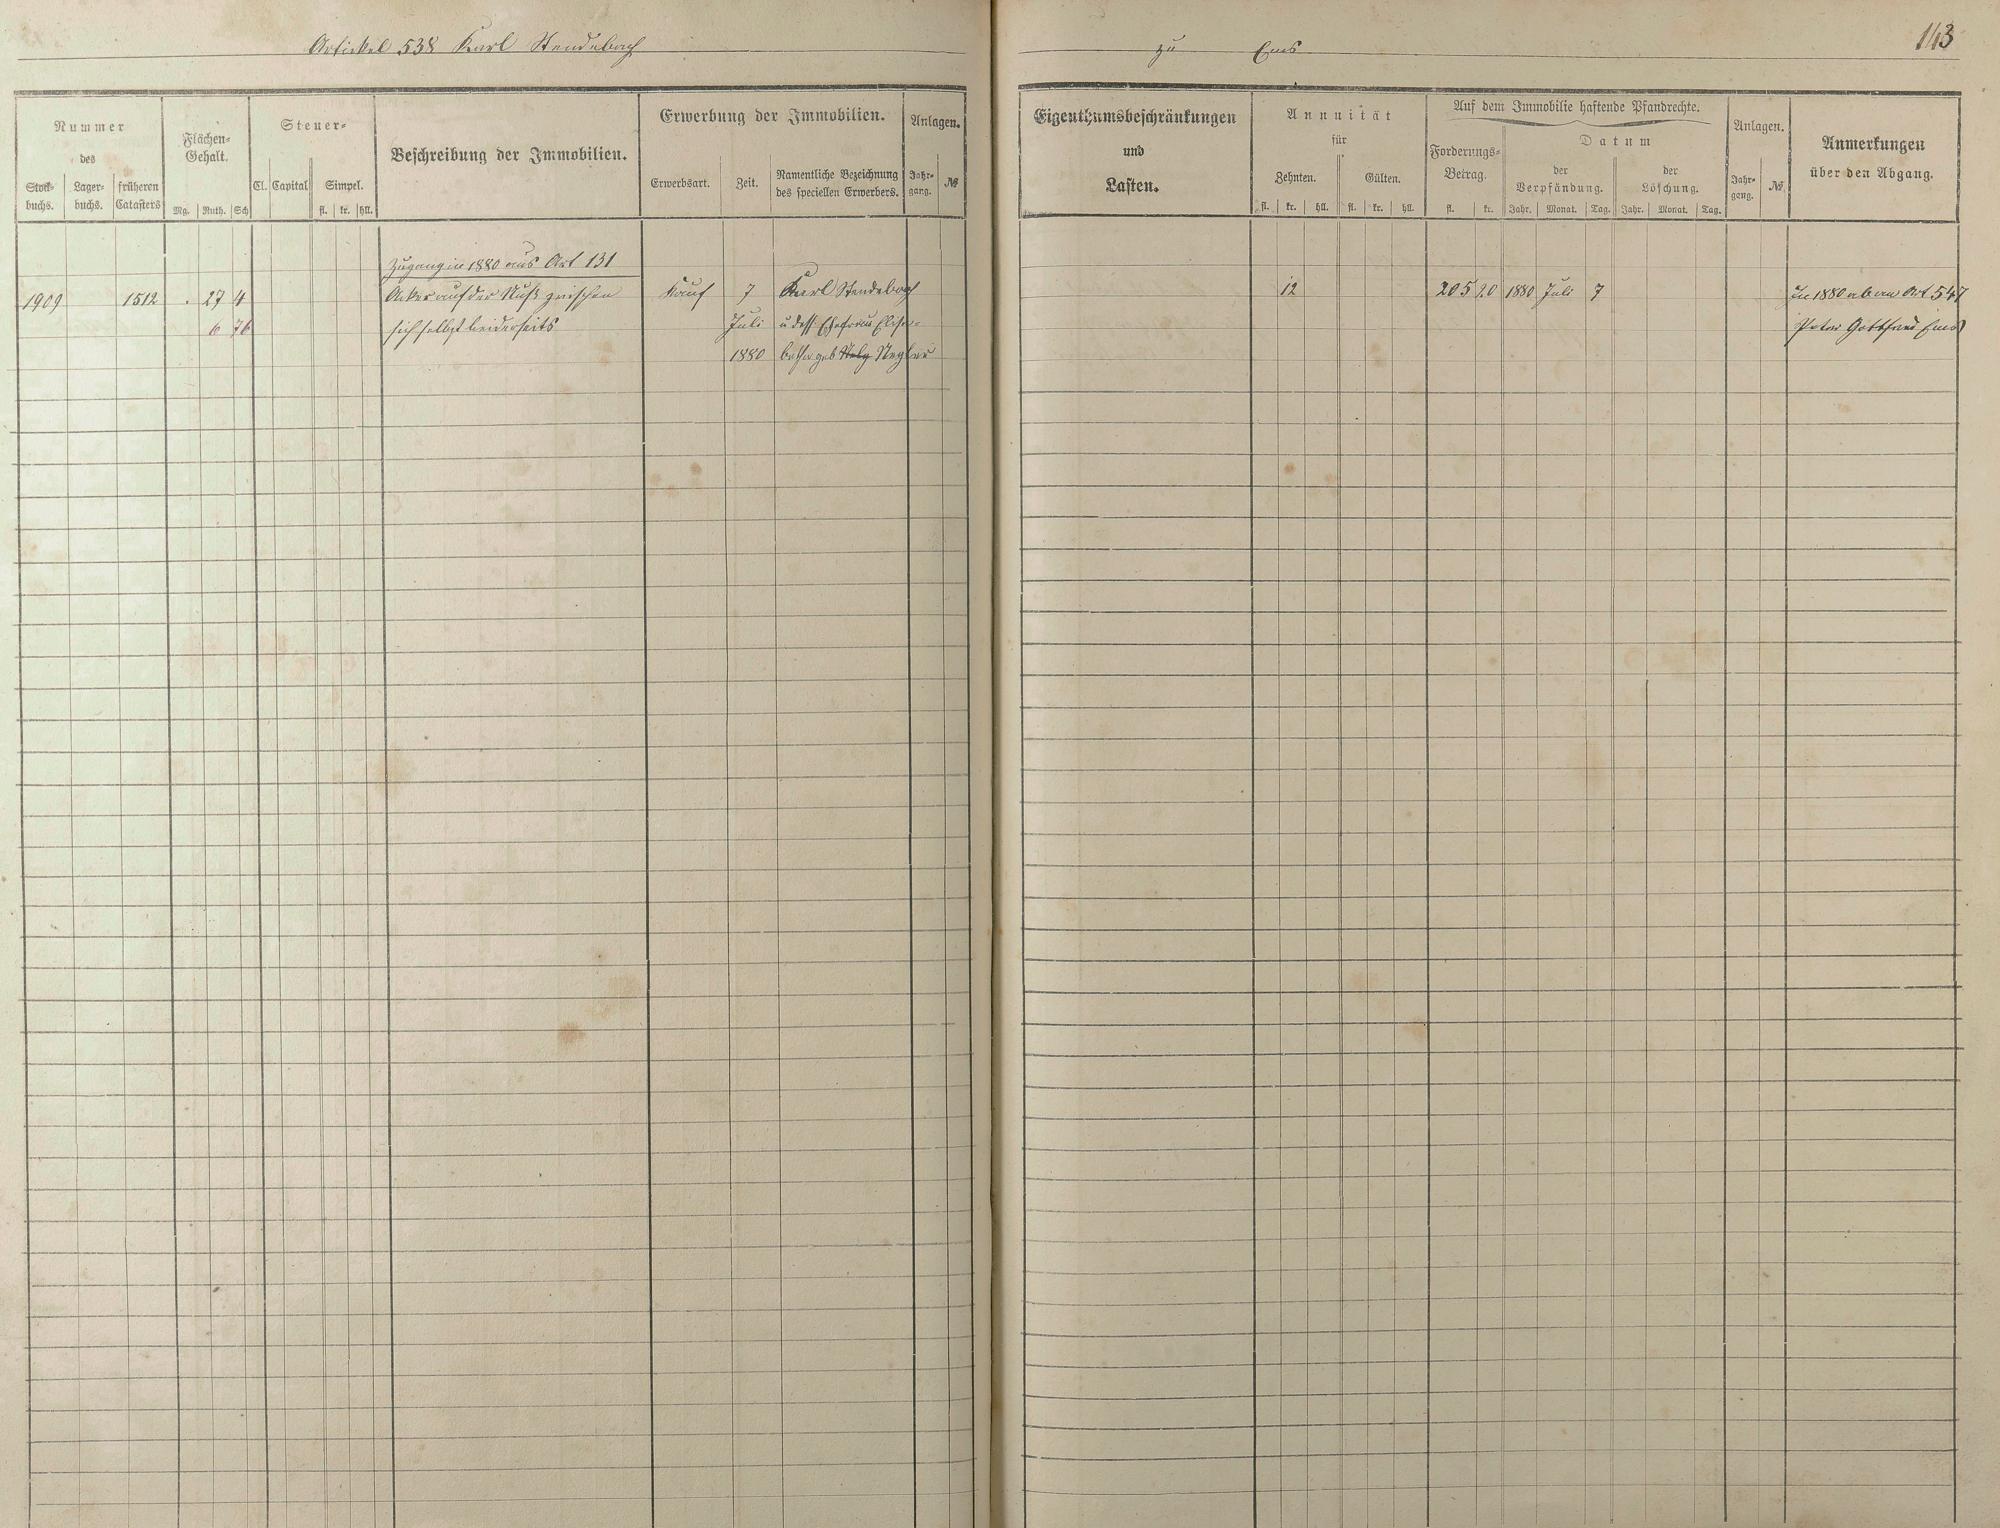 Artickel 538 Karl Stendebach
zu Ems
143
Nummer
des
Stock-
buchs.
Lager-
buchs.
früheren
Catasters
Flächen-
Gehalt.
Mg. Ruth. Sch
Steuer-
Cl. Capital Simpel.
fl. kr. hll.
Beschreibung der Immobilien.
Erwerbung der Immobilien.
Erwerbsart. Zeit.
Namentliche Bezeichnung
des speciellen Erwerbers.
Anlagen.
Jahr-
gang.
№
Eigenthumsbeschränkungen
und
Lasten.
Annuität
für
Zehnten. Gülten.
fl. kr. hll. fl. kr. hll.
Auf dem Immobilie haftende Pfandrechte.
Forderungs-
Betrag.
fl. kr.
Datum
der
Verpfändung.
Jahr. Monat. Tag.
der
Löschung.
Jahr. Monat. Tag.
Anlagen.
Jahr-
gang.
№
Anmerkungen
über den Abgang.
Zugang in 1880 aus Art 131
1909 1512 . 27 4 Acker auf der zwischen Kauf 7 Karl Stendebach 12 205 20 1880 Juli 7 In 1880 ab an Art 547
6 76 sich selbst beiderseits Juli u dess Ehefrau Elisa- Peter Gottfried Ems
1880 betha geb